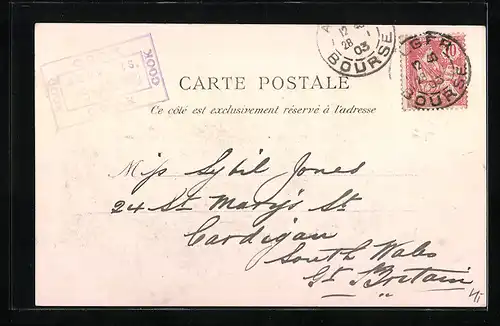 COOK
12
28 - 03
BOURSE
GER
10
BOURSE
CARTE POSTALE
Ce côté est exclusivement réservé à l'adresse
Miss Sybil Jones
24 St Mary's St
Cardigan
South Wales
Gt Britain